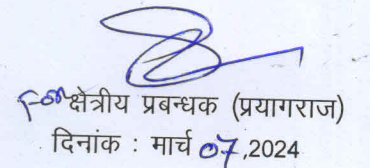 For क्षेत्रीय प्रबन्धक (प्रयागराज)
दिनांक : मार्च 07,2024